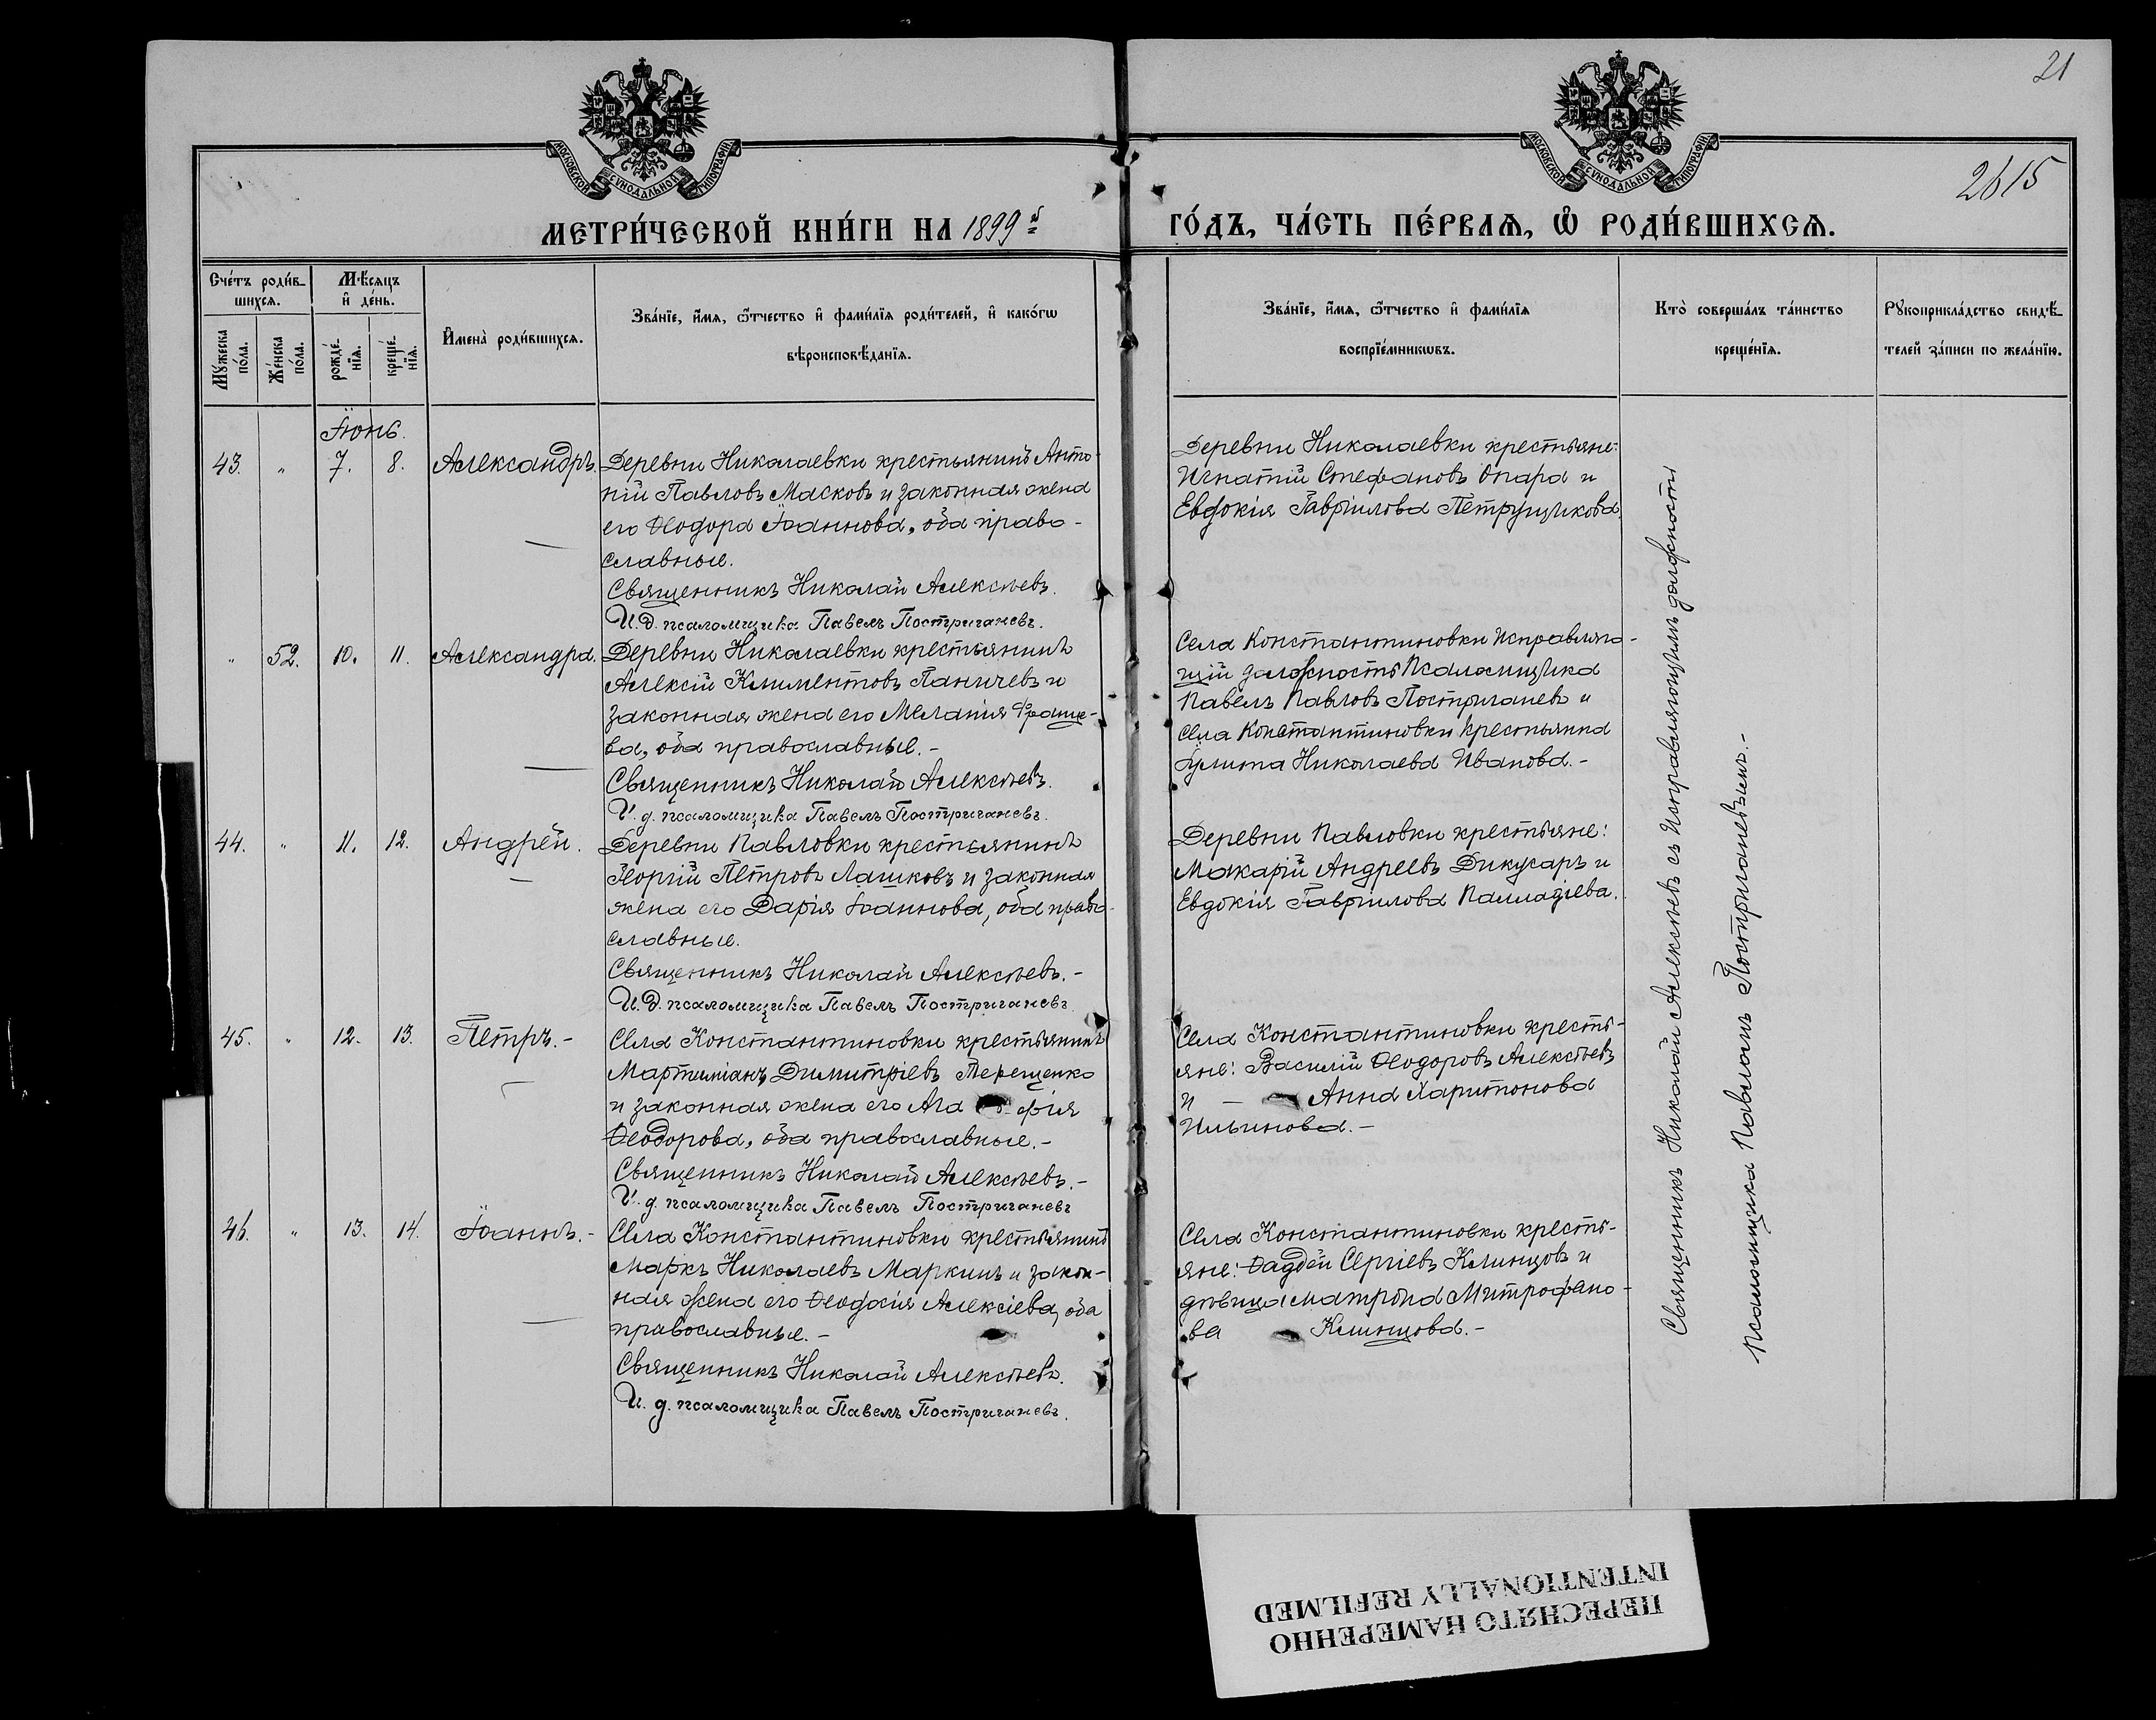 21
2615
МОСКОВСКОЙ СѴНОДАЛЬНОЙ ТИПОГРАФІИ
МОСКОВСКОЙ СѴНОДАЛЬНОЙ ТИПОГРАФІИ
МЕТРИ́ЧЕСКОЙ КНИ́ГИ НА 1899й
ГО́ДЪ, ЧА́СТЬ ПЕ́РВАѦ, Ѽ РОДИ́ВШИХСѦ.
Сче́тъ роди́в-
шихсѧ.
Мꙋ́жеска по́ла.
Же́нска по́ла.
Мѣ́сѧцъ
и҆ де́нь.
рожде́-
нїѧ.
креще́-
нїѧ.
И҆мена̀ роди́вшихсѧ.
Зва́нїе, и҆́мѧ, ѻ҆́тчество и҆ фами́лїѧ роди́телей, и҆ како́гѡ
вѣроисповѣ́данїѧ.
Зва́нїе, и҆́мѧ, ѻ҆́тчество и҆ фами́лїѧ
воспрїе́мникѡвъ.
Кто̀ соверша́лъ та́инство
креще́нїѧ.
Рꙋкоприкла́дство свидѣ́-
телей за́писи по жела́нїю.
Іюнь.
43. " 7. 8. Александръ.
Деревни Николаевки крестьянинъ Анто-
ній Павловъ Масковъ и законная жена
его Ѳеодора Іоаннова, оба право-
славные.
Священникъ Николай Алексѣевъ.
И. д. псаломщика Павелъ Постригачевъ.
Деревни Николаевки крестьяне:
Игнатій Стефановъ Опара и
Евдокія Гавріилова Петрущикова.
" 52. 10. 11. Александра.
Деревни Николаевки крестьянинъ
Алексій Климентовъ Паничевъ и
законная жена его Меланія
ва, оба православные.-
Священникъ Николай Алексѣевъ.
И. д. псаломщика Павелъ Постригачевъ.
Села Константиновки исправляю-
щій должность псаломщика
Павелъ Павловъ Постригачевъ и
села Константиновки крестьянка
Іулита Николаева Иванова.-
44. " 11. 12. Андрей.
Деревни Павловки крестьянинъ
Георгій Петровъ Лашковъ и законная
жена его Дарія Іоаннова, оба право-
славные.
Священникъ Николай Алексѣевъ.-
И. д. псаломщика Павелъ Постригачевъ
Деревни Павловки крестьяне:
Макарій Андреевъ Дикусаръ и
Евдокія Гавріилова Палладіева.
45. " 12. 13. Петръ.-
Села Константиновки крестьянинъ
Мартиніанъ Димитріевъ Терещенко
и законная жена его Ага фія
Ѳеодорова, оба православные.-
Священникъ Николай Алексѣевъ.-
И. д. псаломщика Павелъ Постригачевъ
Села Константиновки кресть-
яне: Василій Ѳеодоровъ Алексѣевъ
и - Анна Харитонова
Ильинова.-
46. " 13. 14. Іоаннъ.-
Села Константиновки крестьянинъ
Маркъ Николаевъ Маркинъ и закон-
ная жена его Ѳеодосія Алексіева, оба
православные.-
Священникъ Николай Алексѣевъ.
И. д. псаломщика Павелъ Постригачевъ.
Села Константиновки кресть-
яне: Ѳаддей Сергіевъ Клинцовъ и
дѣвица Матрона Митрофано-
ва Клинцова.-
Священникъ Николай Алексѣевъ съ исправляющимъ должность
псаломщика Павломъ Постригачевымъ.-
ПЕРЕСНЯТО НАМЕРЕННО
INTENTIONALLY REFILMED